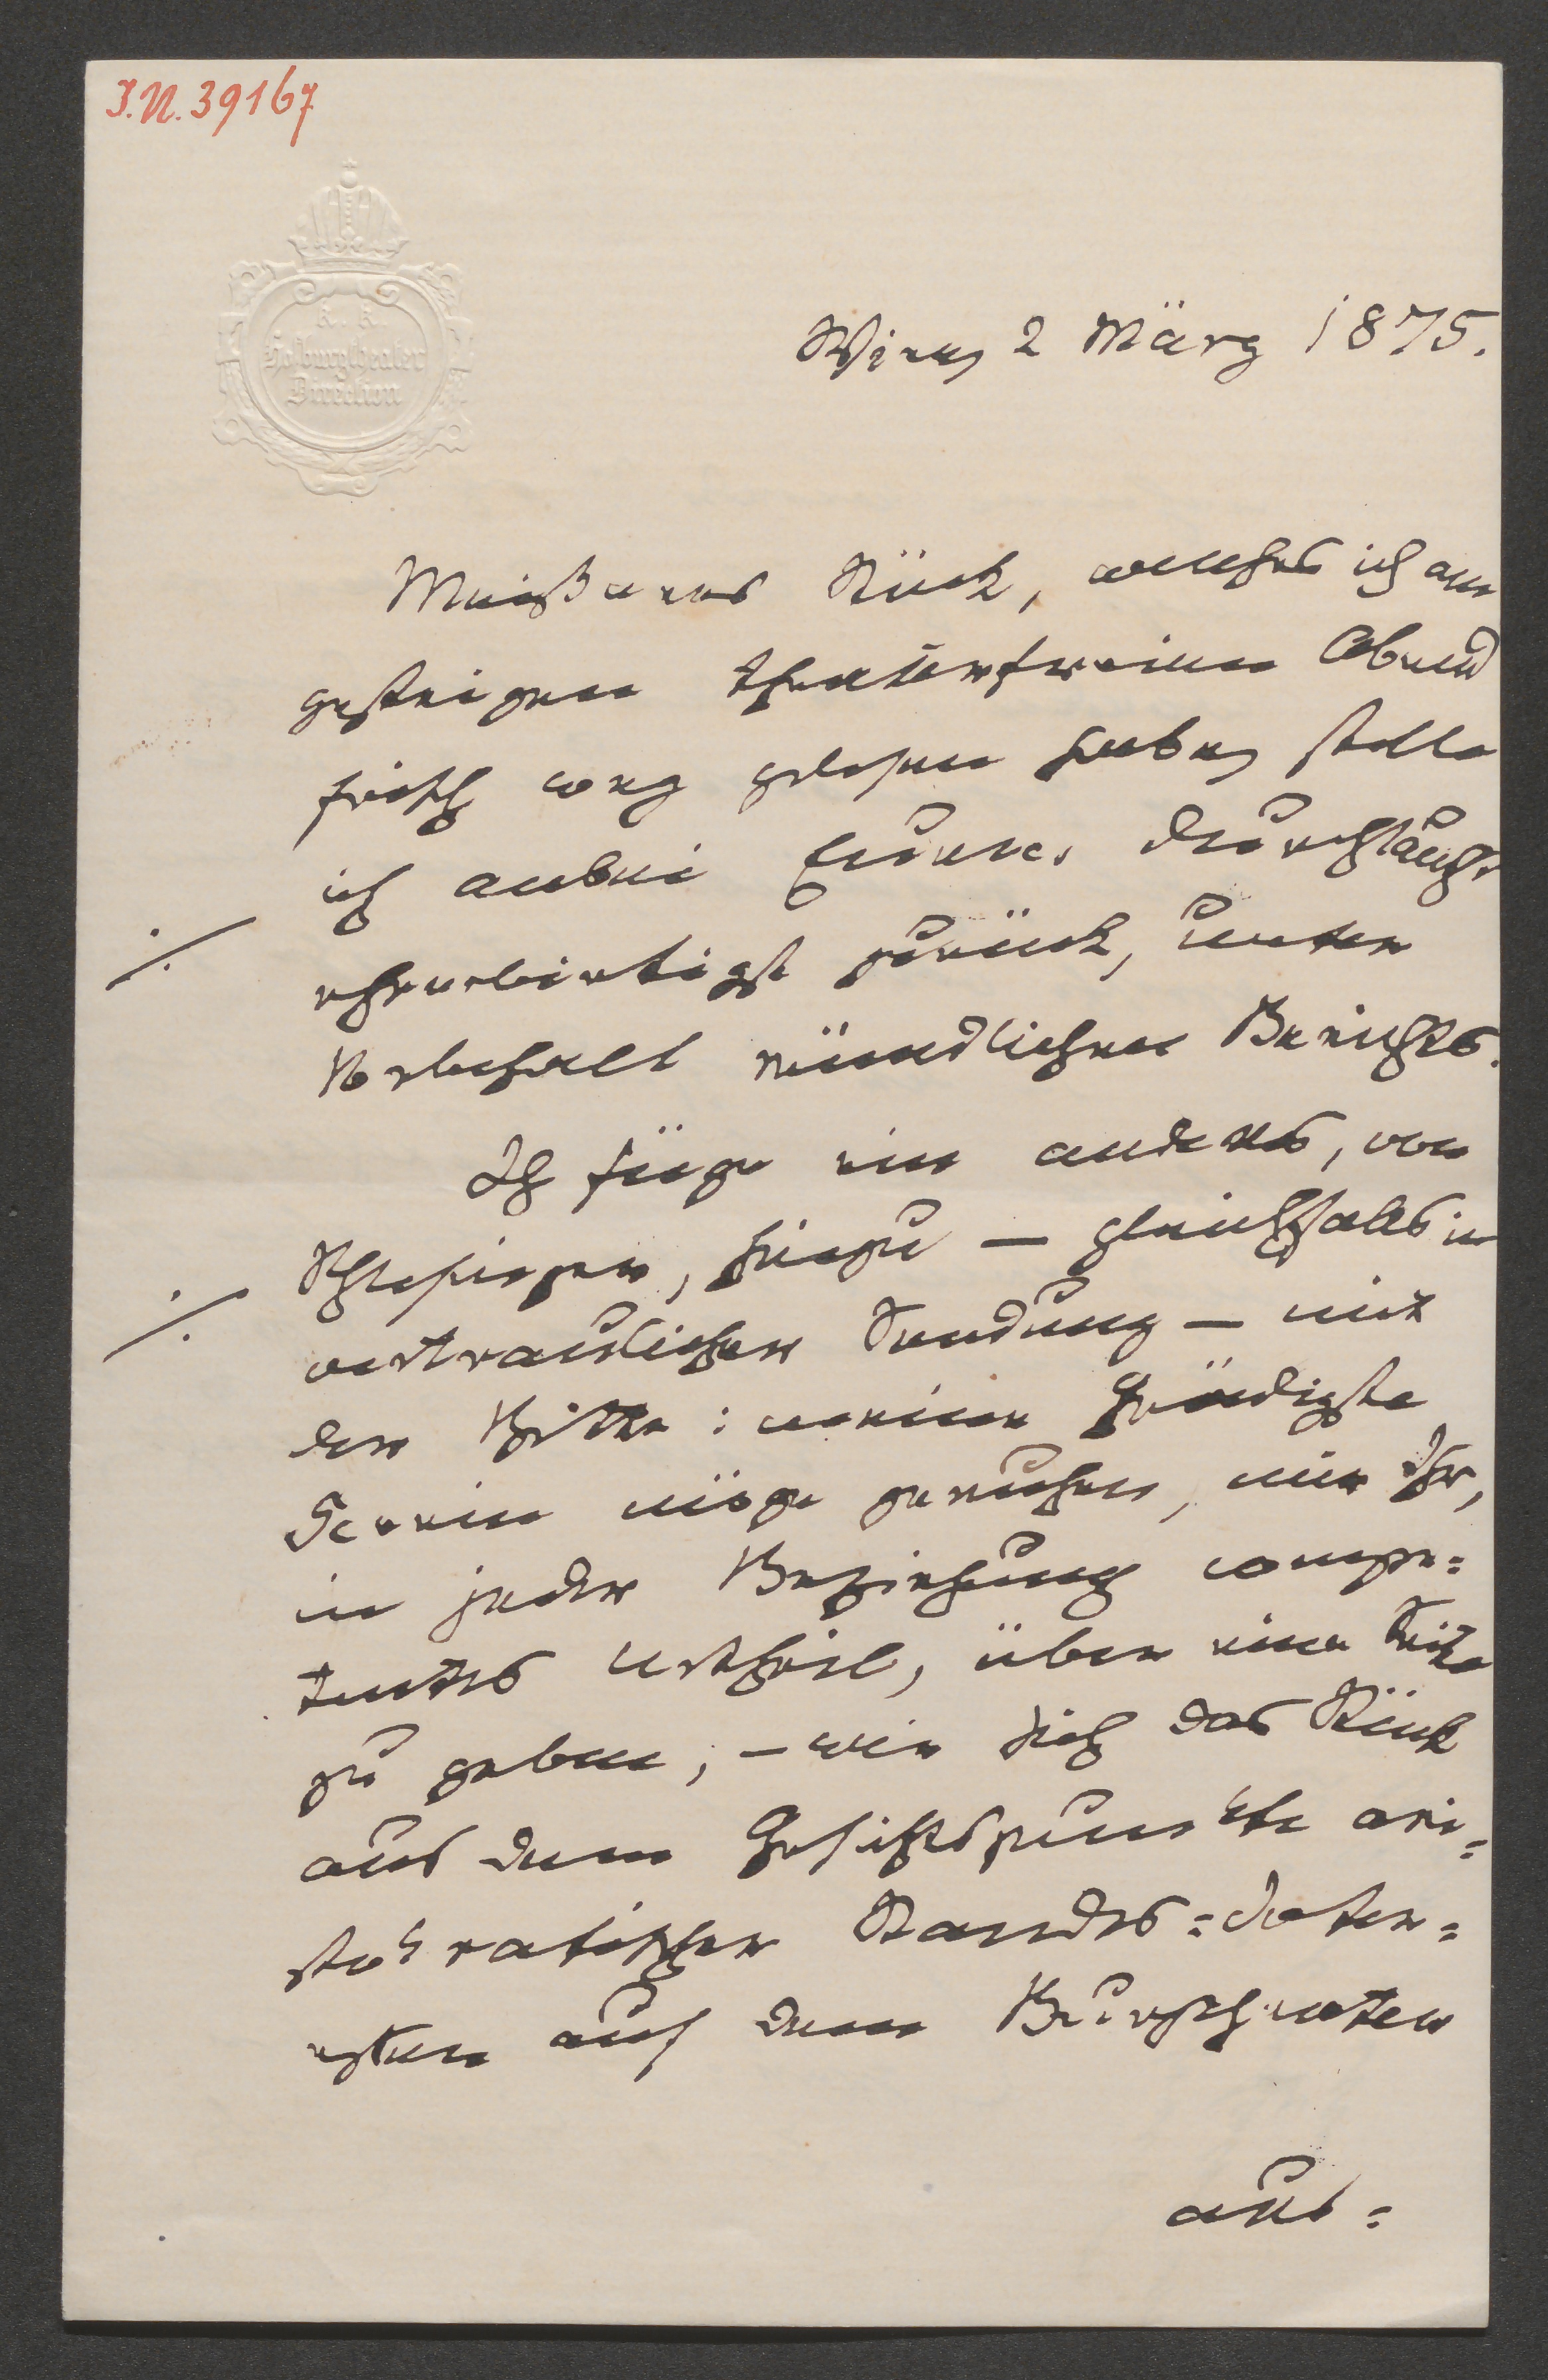 I.N. 39167
K. K.
Hofburgtheater
Direction
Wien, 2 März 1875.
Meißners Stück, welches ich am
gestrigen theaterfreien Abend
frisch weg gelesen habe, stelle
ich anbei Eurer Durchlaucht
./. ehrerbietigst zurück, unter
Vorbehalt mündlichen Berichts.
Ich füge ein anderes, von
./. Schlesinger, hinzu – gleichfalls in
vertraulicher Sendung – mit
der Bitte: meine gnädigste
Herrin möge geruhen, mir Ihr,
in jeder Beziehung compe=
tentes Urtheil, über eine Seite
zu geben; – wie sich das Stück
aus dem Gesichtspunkte ari=
stokratischer Standes=Inter=
essen auf dem Burgtheater
aus=